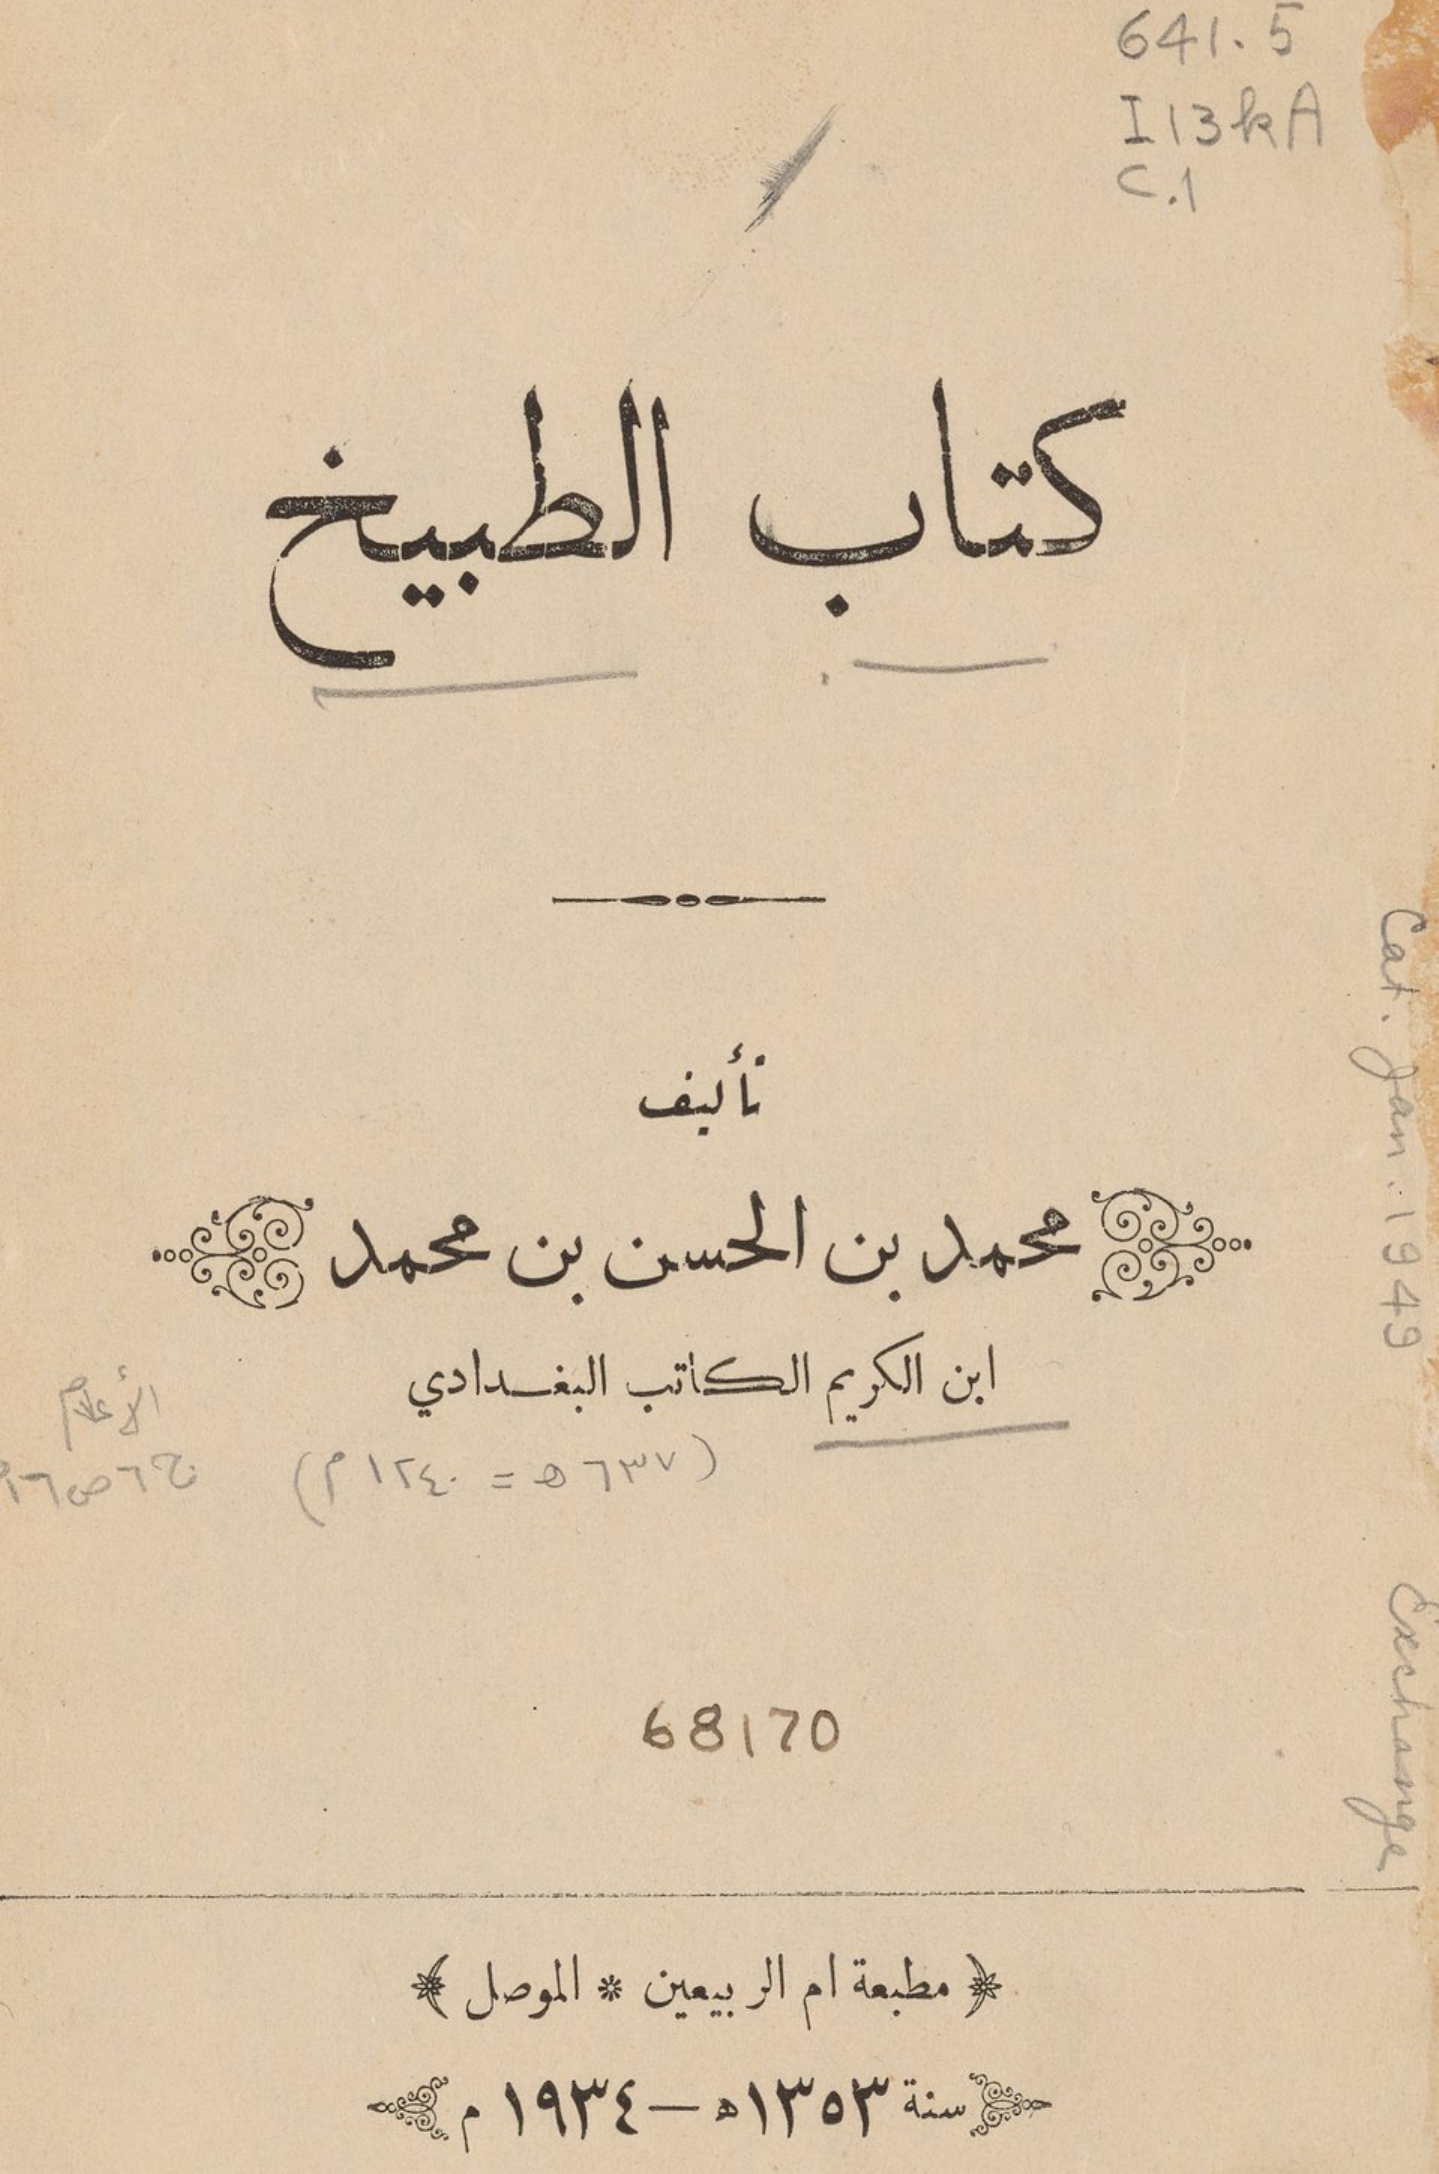 641.5
I13kA
C.1
كتاب الطبيخ
تأليف
محمد بن الحسن بن محمد
ابن الكريم الكاتب البغدادي
(٦٣٧ هـ = ١٢٤٠ م)
الأعلام
ج ٦ ص
Cat. Jan. 1949
68170
Exchange
مطبعة ام الربيعين * الموصل
سنة ١٣٥٣هـ — ١٩٣٤ م